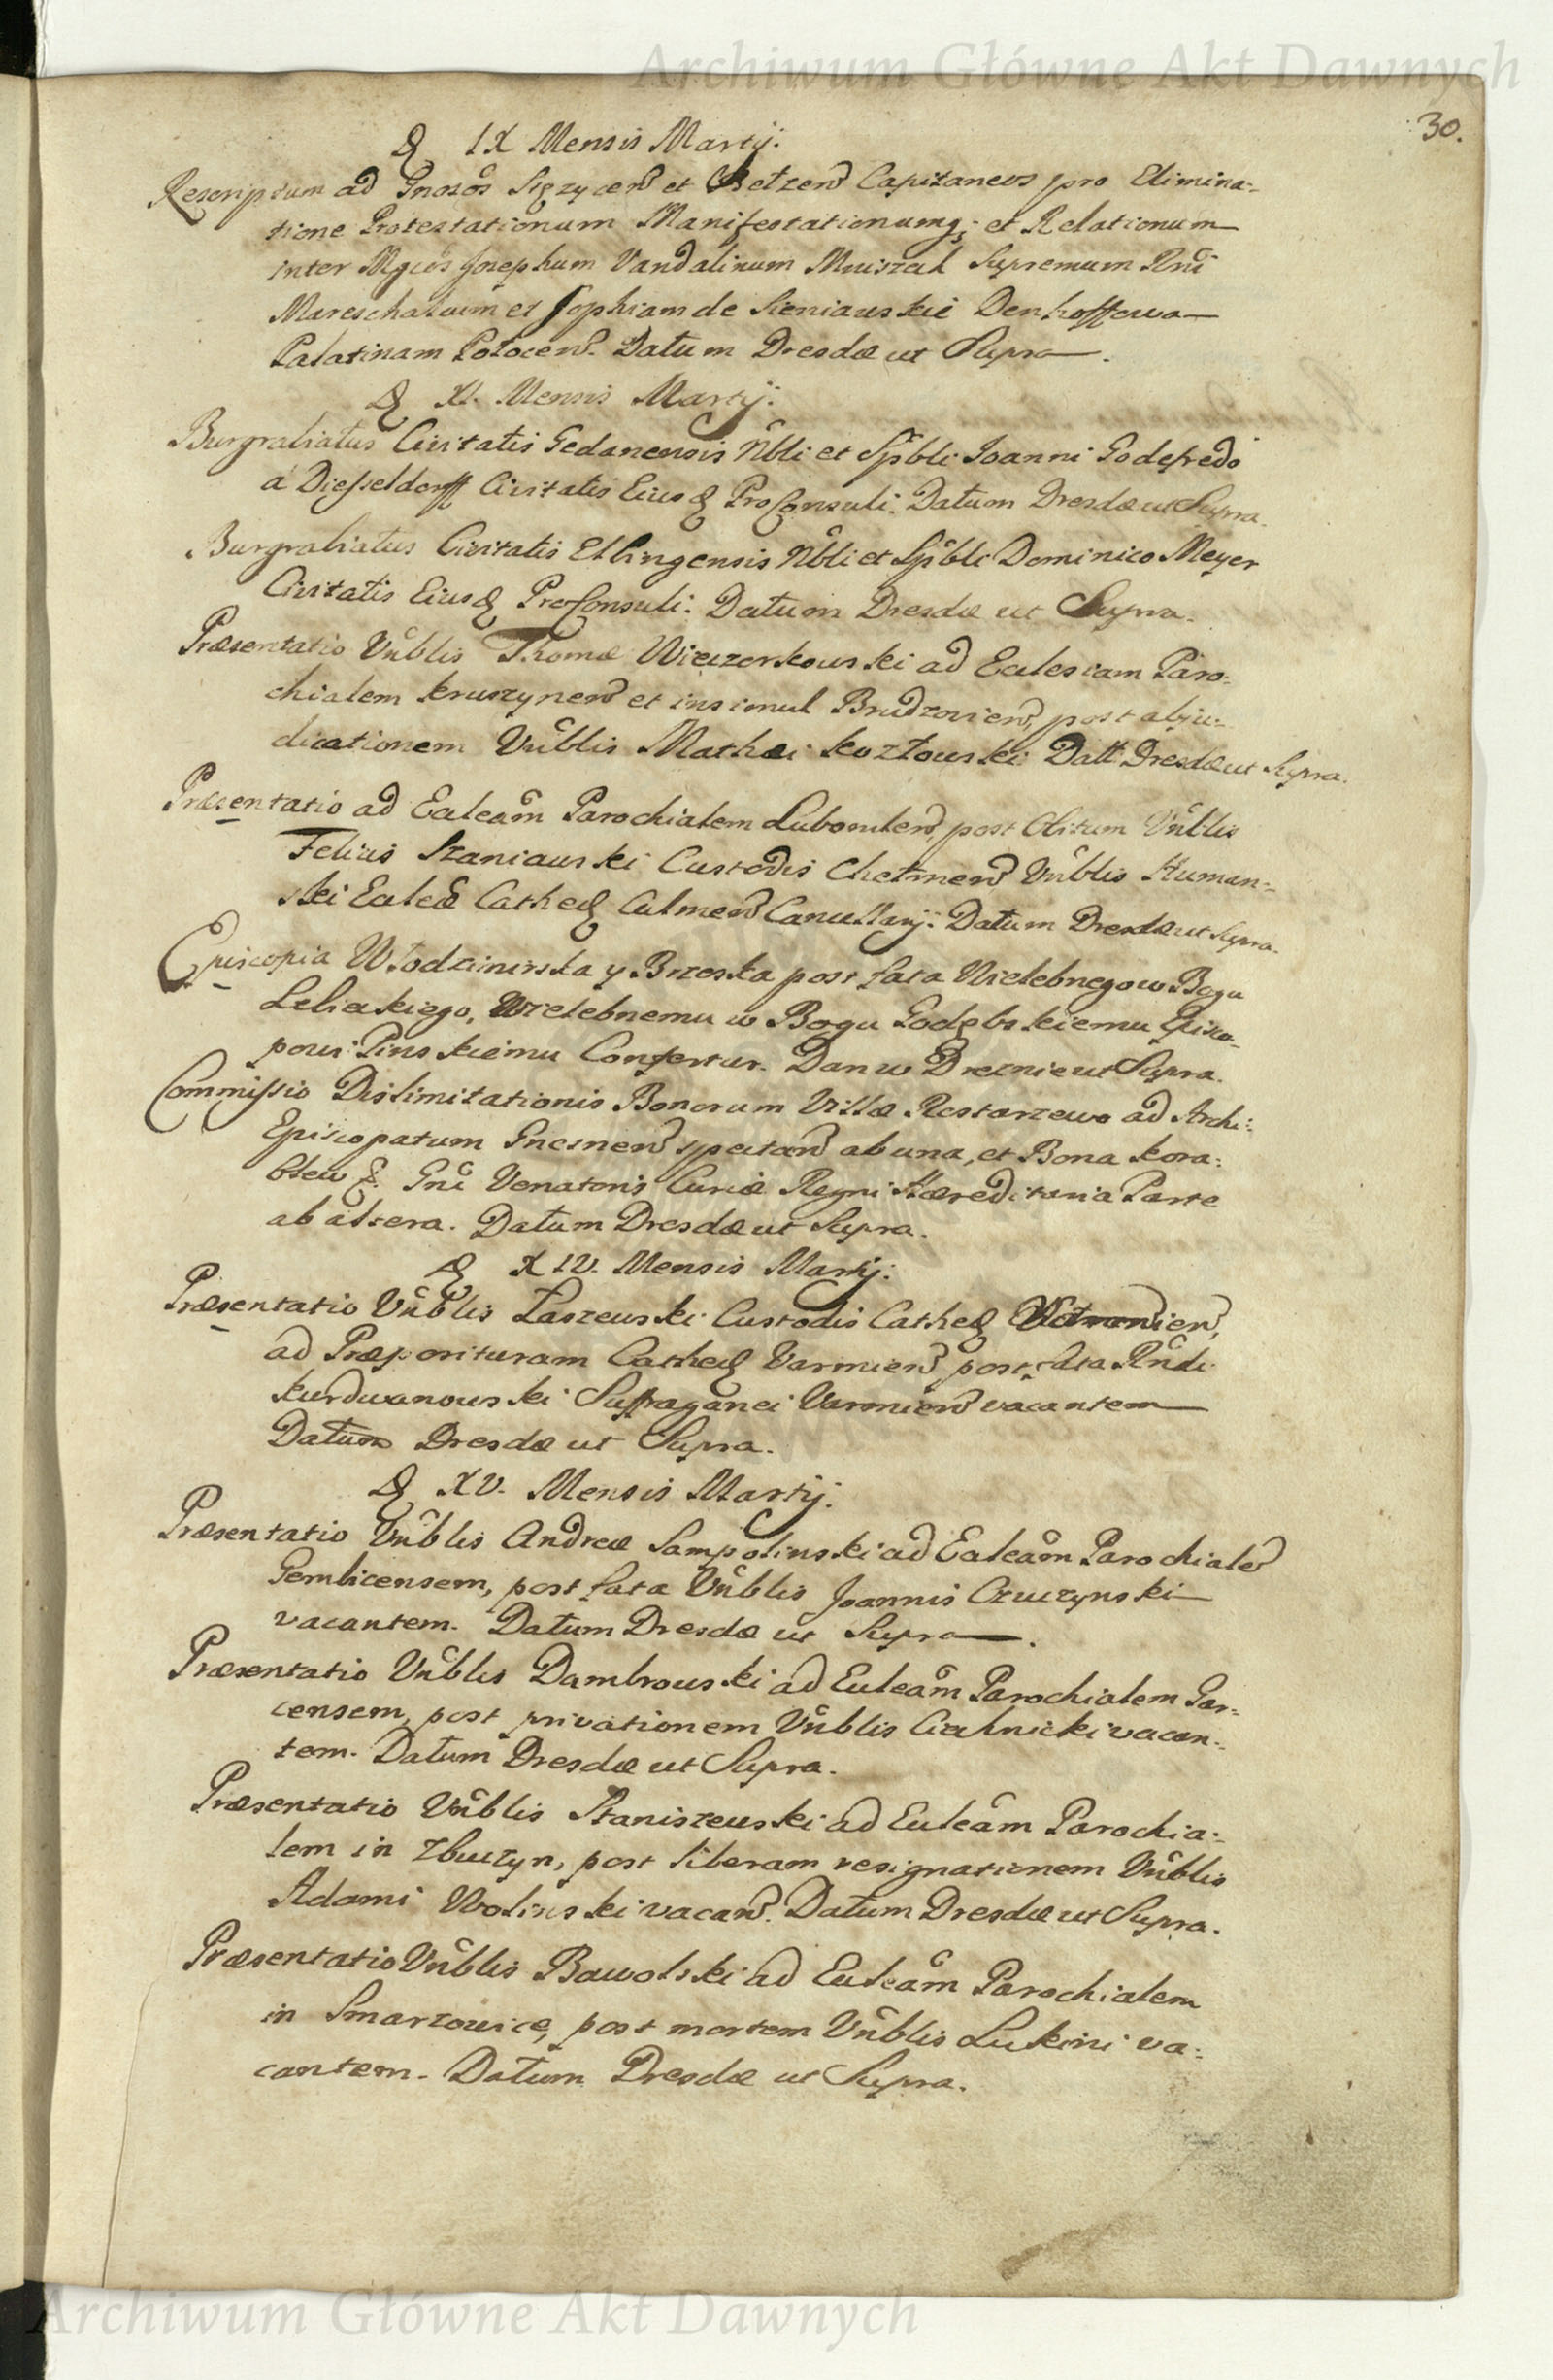 Archiwum Główne Akt Dawnych
30.
D IX Mensis Martij.
Rescriptum ad Gnosos Stęzycen et Betzen Capitaneos pro Elimina-
tione Protestationum Manifestationumq; et Relationum
inter Mgcos Josephum Vandalinum Mniszech Supremum Rni
Mareschalcum et Sophiam de Sieniawskie Denhoffowa
Palatinam Polocen. Datum Dresdæ ut Supra.
D XI. Mensis Martij.
Burgrabiatus Civitatis Gedanensis Nbli et Spbli Joanni Godefredo
a Diesseldorff Civitatis Eiusd ProConsuli. Datum Dresdæ ut Supra.
Burgrabiatus Civitatis Elbingensis Nbli et Spbli Dominico Meyer
Civitatis Eiusd ProConsuli. Datum Dresdæ ut Supra.
Præsentatio Vnblis Thomæ Wieczorkowski ad Eclesiam Paro-
chialem Kruszynen et insimul Brudzovien, post abju-
dicationem Vnblis Mathæi Kozłowski Datt Dresdæ ut Supra.
Præsentatio ad Ecleam Parochialem Lubomlen, post Obitum Vnblis
Felicis Szaniawski Custodis Chełmen Vnblis Human-
ski Eclæ Cathed Culmen Cancellarij. Datum Dresdæ ut Supra.
Episcopia Włodzimirska y Brzeska post fata Wielebnego w Bogu
Lebieckiego, Wielebnemu w Bogu Godębskiemu Episco-
powi Pinskiemu Confertur. Dan w Dreznie ut Supra.
Commissio Dislimitationis Bonorum Villæ Restarzewo ad Archi-
Episcopatum Gnesnen spectan ab una, et Bona Kora-
blew Gni Venatoris Curiæ Regni Hæreditaria Parte
ab altera. Datum Dresdæ ut Supra.
D XIV. Mensis Martij.
Præsentatio Vnblis Łaszewski Custodis Cathed
ad Præposituram Cathed Varmien post fata Rndi
Kurdwanowski Suffraganei Varmien vacantem
Datum Dresdæ ut Supra.
D XV. Mensis Martij.
Præsentatio Vnblis Andreæ Sampolinski ad Ecleam Parochiale
Gembicensem, post fata Vnblis Joannis Czuczynski
vacantem. Datum Dresdæ ut Supra.
Præsentatio Vnblis Dambrowski ad Ecleam Parochialem Gor-
censem, post privationem Vnblis Ciechnicki vacan-
tem. Datum Dresdæ ut Supra.
Præsentatio Vnblis Staniszewski ad Ecleam Parochia-
lem in Zbuczyn, post liberam resignationem Vnblis
Adami Wolinski vacan. Datum Dresdæ ut Supra.
Præsentatio Vnblis Bawolski ad Ecleam Parochialem
in Smarzowice, post mortem Vnblis Lukini va-
cantem. Datum Dresdæ ut Supra.
Archiwum Główne Akt Dawnych